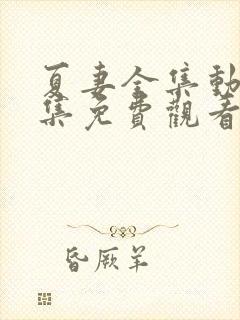 夏妻全集動
集免費觀看
昏厥羊